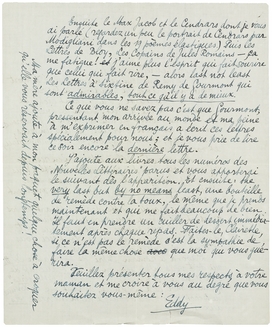 Ensuite le Max Jacob et le Cendrars dont je vous
ai parlé (regardez un peu le portrait de Cendrars par
Modigliani dans les 19 poèmes élastiques) Tous les
Lettres de Bloy, Les Copains de Jules Romains — ça
me fatigue! et j'aime plus l'esprit que fait sourire
que celui qui fait rire, — alors last not least
Les Lettres à Sixtine de Remy de Gourmont qui
sont admirables, tout ce qu'il y a de mieux.
Ce que vous ne savez pas c'est que Gourmont,
présentant mon arrivée au monde et ma peine
à m'exprimer en français a écrit ces lettres
pour nous! et je vous prie de lire
ce soir encore la dernière lettre.
J'ajoute aux livres tous les numéros des
Nouvelles Littéraires parus et vous
le suivant dès l'apparition, et ensuite the
very last but by no means least, une bouteille
de remède contre la toux, le même que je prends
maintenant et que fait beaucoup de bien.
Il faut en prendre un cuiller de dessert immédia-
tement après chaque repas. Faites-le, Clairette,
si ce n'est pas le remède c'est la sympathie de
faire la même chose que moi qui vous gué-
rira.
Veuillez présenter tous mes respects à votre
maman et me croire à vous au degré que vous
souhaitez vous-même: Eddy
Ma mère ajoute à mon paquet quelque chose à croquer
qu'elle vous réservait depuis longtemps!